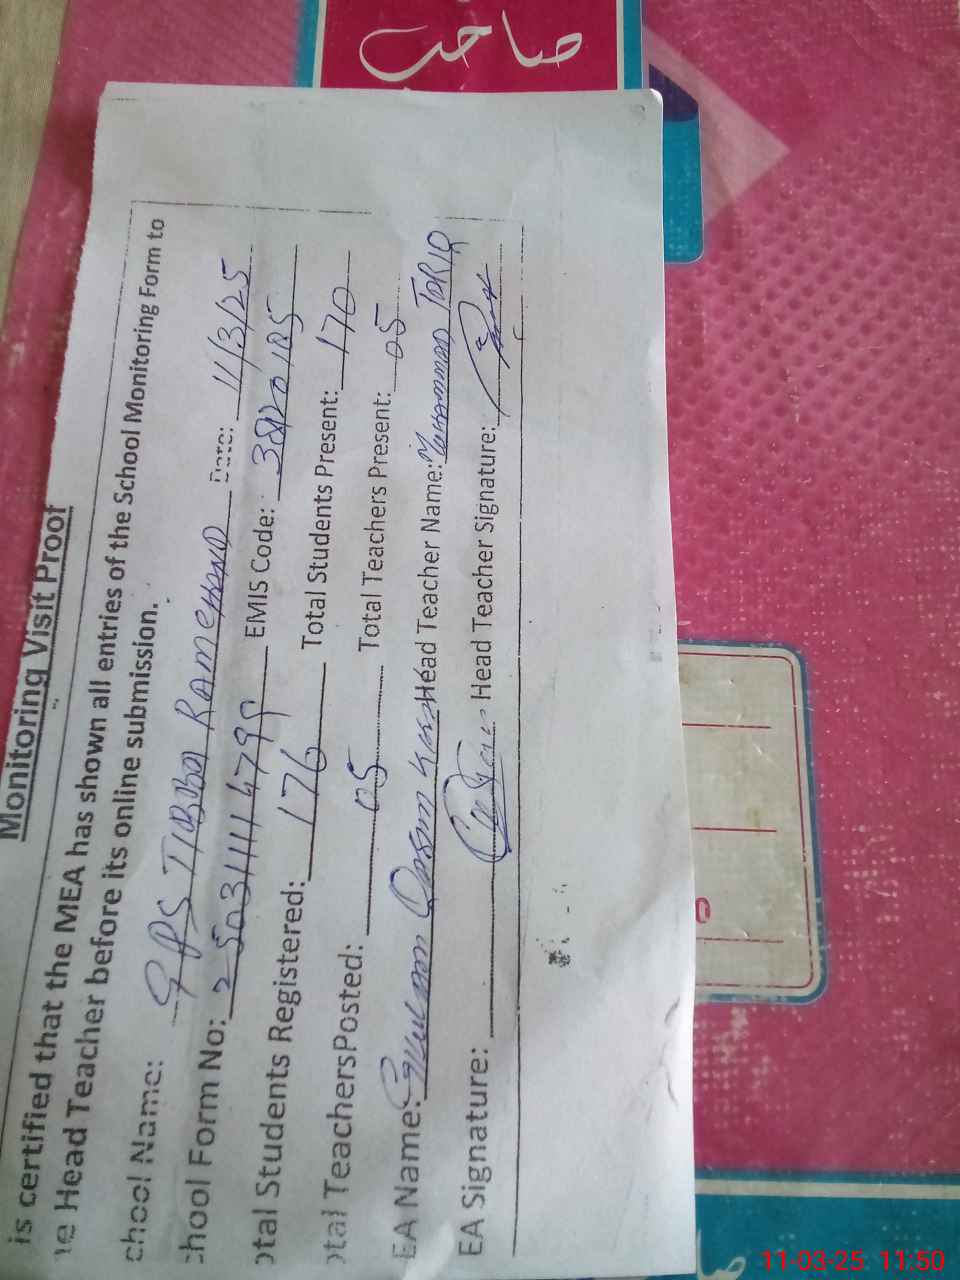 صاحب
Monitoring Visit Proof
is certified that the MEA has shown all entries of the School Monitoring Form to
e Head Teacher before its online submission.
chool Name: GPS TIBBA RAMEHAND Date: 11/3/25
hool Form No: EMIS Code:
otal Students Registered: 176 Total Students Present: 170
otal TeachersPosted: 05 Total Teachers Present: 05
EA Name: Ghulam Qasim Head Teacher Name: Muhammad TARIQ
EA Signature: Head Teacher Signature:
11-03-25 11:50